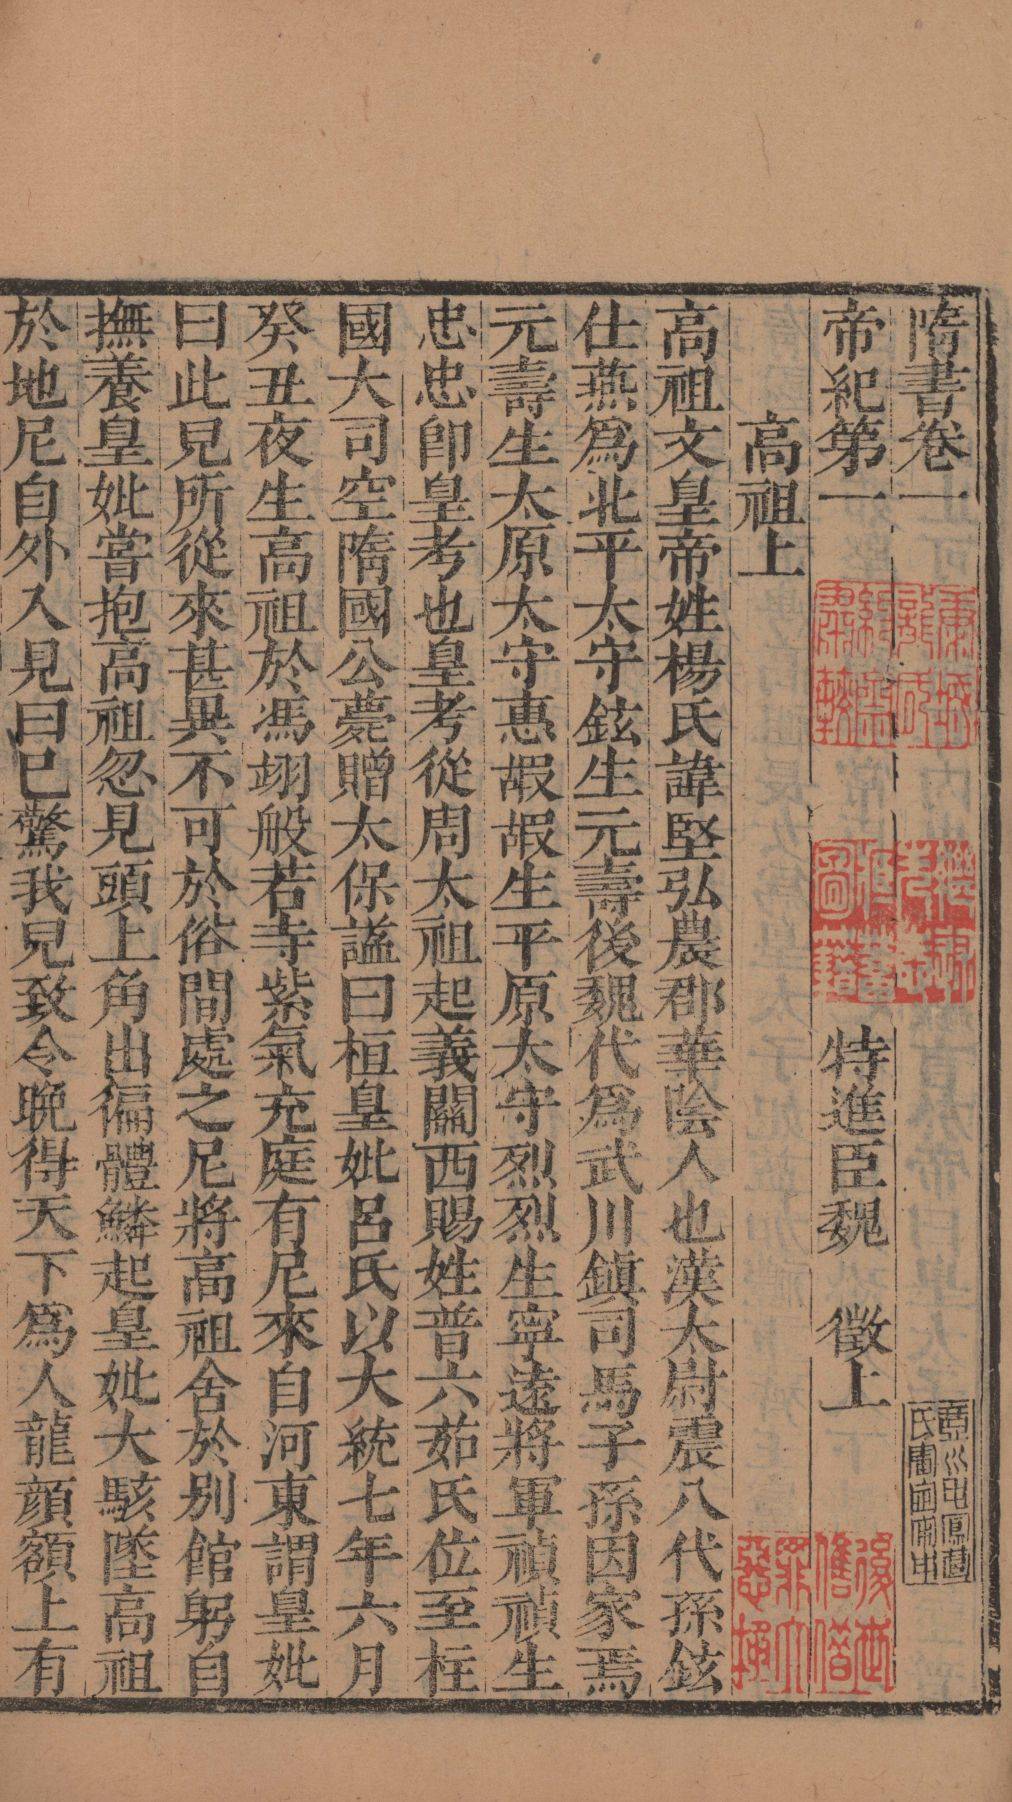 隋書卷一
帝紀第一　特進臣魏　徵上
高祖上
高祖文皇帝姓楊氏諱堅弘農郡華陰人也漢太尉震八代孫鉉
仕燕爲北平太守鉉生元壽後魏代爲武川鎮司馬子孫因家焉
元壽生太原太守惠嘏嘏生平原太守烈烈生寧遠將軍禎禎生
忠忠卽皇考也皇考從周太祖起義關西賜姓普六茹氏位至柱
國大司空隋國公薨贈太保諡曰桓皇妣呂氏以大統七年六月
癸丑夜生高祖於馮翊般若寺紫氣充庭有尼來自河東謂皇妣
曰此兒所從來甚異不可於俗間處之尼將高祖舍於別館躬自
撫養皇妣嘗抱高祖忽見頭上角出徧體鱗起皇妣大駭墜高祖
於地尼自外入見曰已驚我兒致令晚得天下爲人龍顏額上有